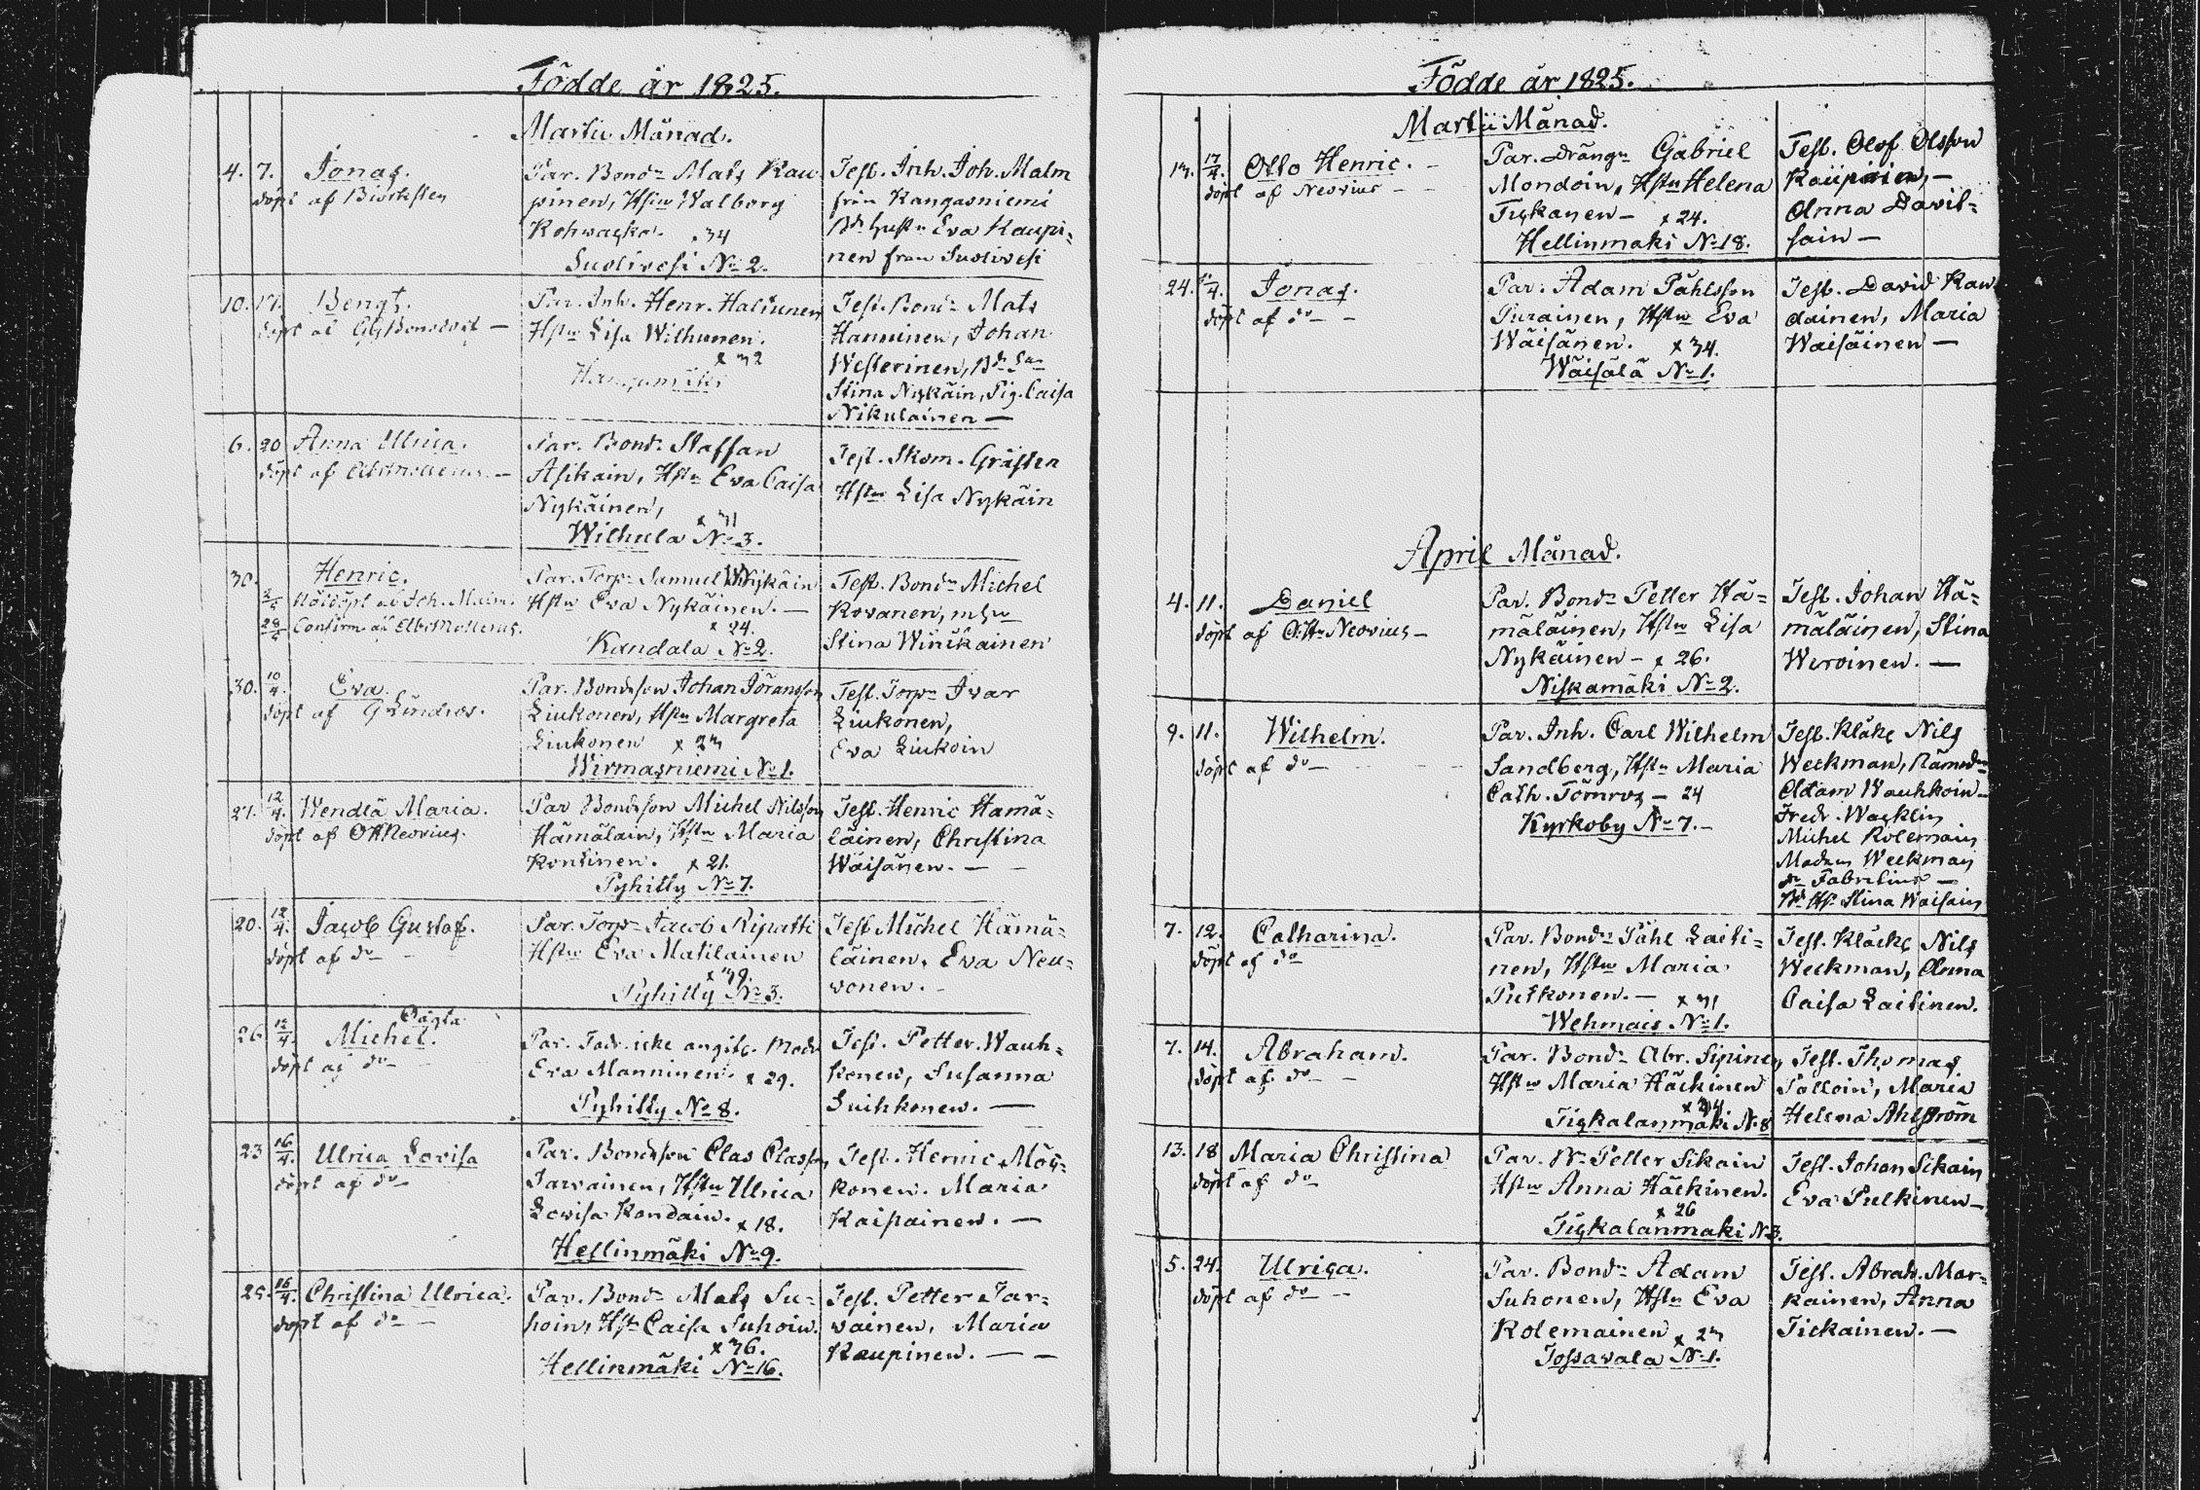 Födde år 1825.
Martii Månad.
4. 7. Jonas.
döpt af Biörksten
Par. Bond: Mats Kau
pinen, Hstru Walborg
Kohwagka. 34
Suolivesi No 2.
Test. Inh. Joh. Malm
från Kangasniemi
Eva Kaupi=
nen från Suolivesi
10. 17. Bengt.
döpt af
Par. Inh. Henr. Haliunen
Hstru Lisa Wilhunen.
x 32
Test. Bond: Mats
Hänninen, Johan
Westerinen,
Stina Nykäin, Pig. Caisa
Nikulainen —
6. 20 Anna Ulrica.
döpt af
Par. Bond: Staffan
Asikain, Hstru Eva Caisa
Nykäinen,
x 31
Wilhula No 3.
Test. Skom. Grästen
Hstru Lisa Nykäin
30. Henric.
Nöddöpt af Joh. Malm.
28/5 Confirm. af
Par. Torp: Samuel Nykäin
Hstru Eva Nykäinen. —
x 24.
Kandala No 2.
Test. Bond: Michel
Kovanen,
Stina Winikainen
30. 10/4. Eva.
döpt af G Lindros.
Par. Bondeson Johan Jöransson
Liukonen, Hstru Margreta
Liukonen x 23
Wirmasniemi No 1.
Test. Torp: Ivar
Liukonen,
Eva Liukoin
27. 12/4. Wendla Maria.
döpt af OHNeovius.
Par Bondeson Michel Nilsson
Hämäläin, Hstru Maria
Kontinen. x 21.
Pyhilty No 7.
Test. Henric Hamä=
läinen, Christina
Wäisänen. —
20. 12/4. Jacob Gustaf.
döpt af do
Par. Torp: Jacob Ripatti
Hstru Eva Matilainen
x 39.
Pyhilty No 3.
Test Michel Hämä=
läinen, Eva Neu=
vonen.
26. 12/4. Michel. Oägta
döpt af do
Par. Fadr. icke angifv. Modr
Eva Manninen. x 29.
Pyhilty No 8.
Test. Petter Wauh=
konen, Susanna
Luihkonen. —
23 16/4. Ulrica Lovisa
döpt af do
Par. Bondeson Clas Classon
Parvainen, Hstru Ulrica
Lovisa Kondain. x 18.
Hellinmäki No 9.
Test. Henric Mös=
konen. Maria
Kaipainen. —
25. 16/4. Christina Ulrica.
döpt af do —
Par. Bond: Mats Su=
hoin, Hstru Caisa Suhoin.
x 36.
Hellinmäki No 16.
Test. Petter Par=
vainen, Maria
Kaupinen. — —
Födde år 1825.
Martii Månad.
13. 17/4. Otto Henric. —
döpt af Neovius —
Par. Drängn Gabriel
Mondoin, Hstru Helena
Tiskanen — x 24.
Hellinmäki No 18.
Test. Olof Olsson
Kaupinen, —
Anna Davil=
sain —
24. Jonas.
döpt af do —
Par. Adam Påhlsson
Purainen, Hstru Eva
Wäisänen. x 34.
Wäisälä No 1.
Test. David Kau
dainen, Maria
Waisäinen —
April Månad.
4. 11. Daniel
döpt af O:Hn Neovius —
Par. Bond: Petter Hä=
mäläinen, Hstru Lisa
Nykäinen — x 26.
Niskamäki No 2.
Test. Johan Hä=
mäläinen, Stina
Wirvinen. —
9. 11. Wilhelm.
döpt af do —
Par. Inh. Carl Wilhelm
Sandberg, Hstru Maria
Cath. Törnros — 24
Kyrkoby No 7. —
Test. Klåk: Nils
Weckman,
Adam Wauhkoin —
Fredr. Wacklin
Michel Kolemain
Madam Weckman
do Fabritius —
Stina Waisain
7. 12. Catharina.
döpt af do
Par. Bond: Påhl Laiti=
nen, Hstru Maria
Putkonen. — x 31
Wehmais No 1.
Test. Klåck: Nils
Weckman, Anna
Caisa Laitinen.
7. 14. Abraham.
döpt af do —
Par. Bond: Abr. Sipinen
Hstru Maria Häckinen
x 34
Tiskalanmäki No 8
Test. Thomas
Palloin, Maria
Helena Ahlström
13. 18 Maria Christina
döpt af do
Par. Bn Petter Sikain
Hstru Anna Häckinen.
x 26
Tiskalanmaki No 3.
Test. Johan Sikain
Eva Pulkinen —
5. 24. Ulrica.
döpt af do —
Par. Bond: Adam
Suhonen, Hstru Eva
Kolemainen x 23
Tossavala No 1.
Test. Abrah. Mar=
kainen, Anna
Tickainen. —